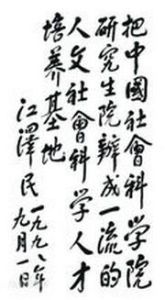 把中國社會科學院
研究生院辦成一流的
人文社會科學人才
培养基地
江澤民
一九九八年
九月一日